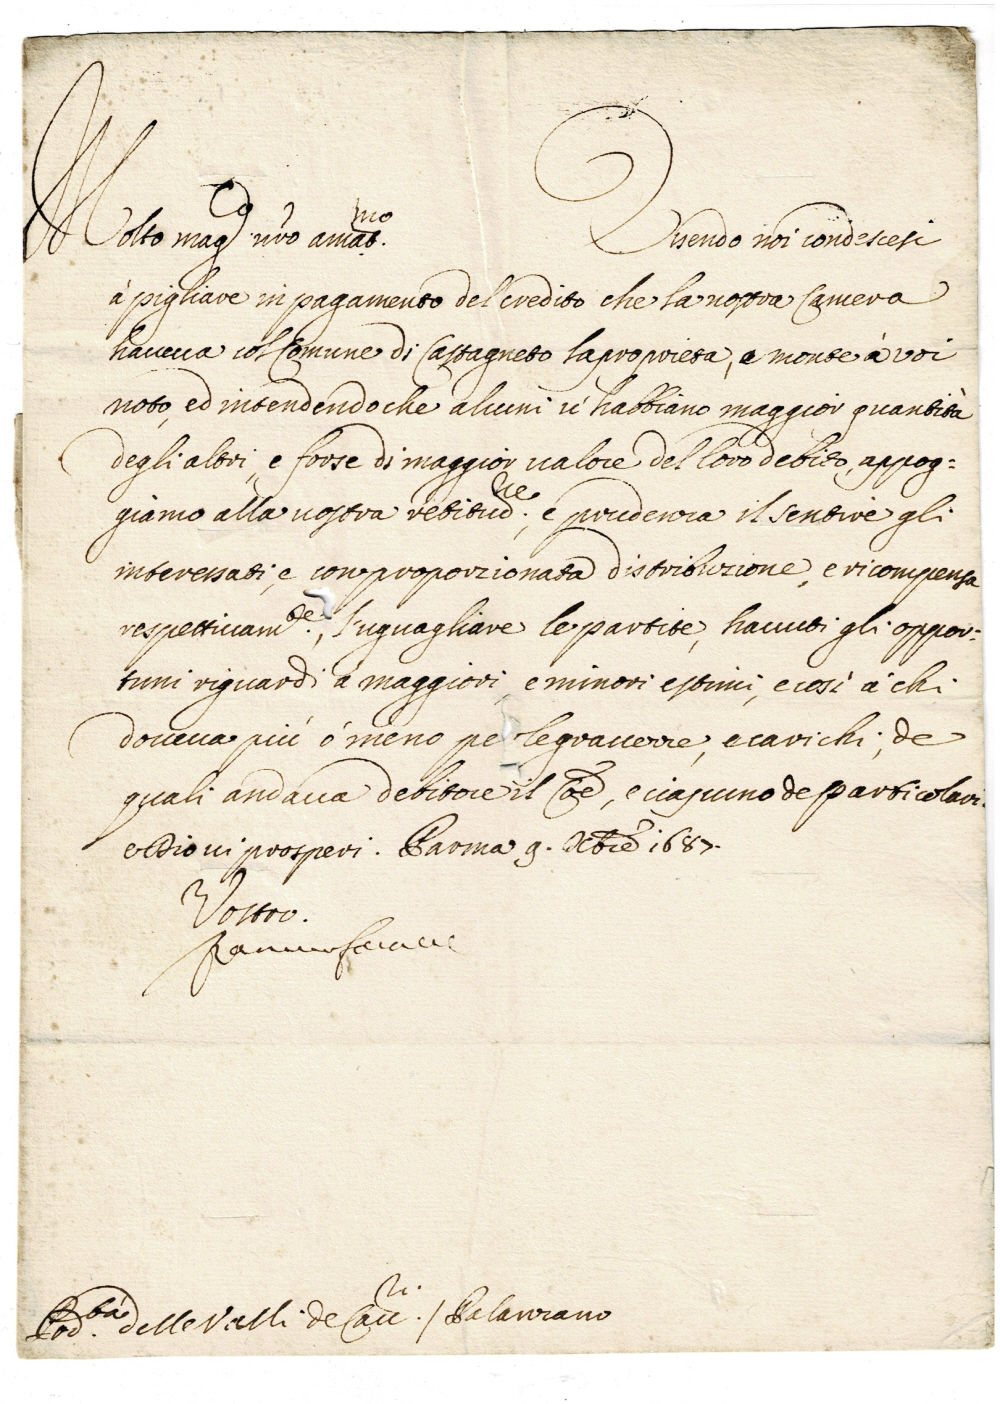 Molto mag.co nro amat.mo Essendo noi condescesi
à pigliare in pagamento del credito che la nostra Camera
haueua col Comune di Castagneto la proprieta, e monte à voi
noto, ed intendendo che alcuni ui habbiano maggior quantità
degli altri, e forse di maggior ualore del loro debito, appog=
giamo alla uostra retitud.ne, e prudenza il sentire gli
interessati, e con proporzionata distribuzione, e ricompensa
respettiuam.te, l'uguagliare le partite, hauuti gli oppor=
tuni riguardi à maggiori, e minori estimi, e così à chi
doueua più ò meno pe le grauezze, e carichi, de
quali andaua debitore il Coe, e ciascuno de particolari.
e Dio ui prosperi. Parma 9. Xbre 1687.
Vostro.
Ranuccio Farnese
Pod.tà delle Valli de Cau.ri / Palanzano